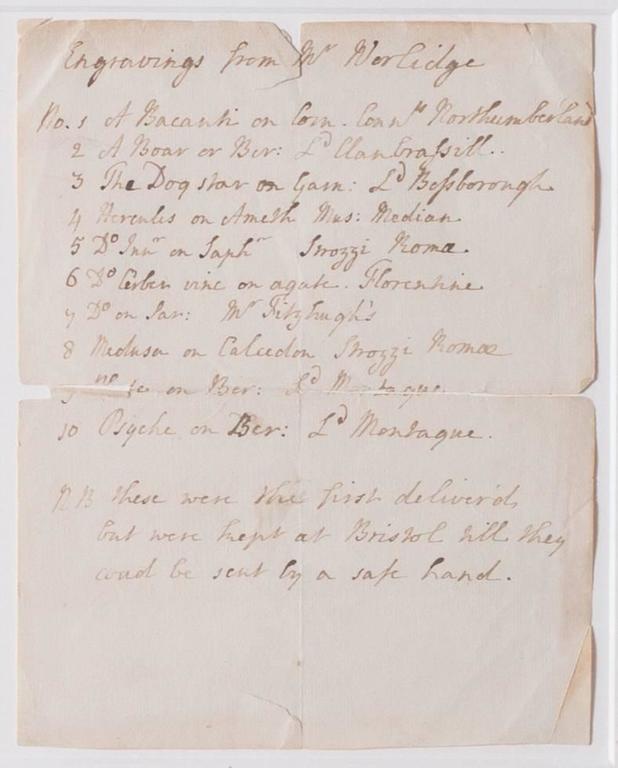 Engravings from Mr Worlidge
No. 1 A Bacanti on Corn. Counss Northumberland
2 A Boar or Ber: Ld Clanbrassill.
3 The Dog star on Garn: Ld Bessborough
4 Hercules on Ameth Mus: Median
5 Do Junr on Saphr Strozzi Romæ
6 Do Cerber vinc on agate. Florentine
7 Do on Sar: Mr Fitzhugh's
8 Medusa on Calcedon Strozzi Romæ
9 on Ber: Ld Montague
10 Psyche on Ber: Ld Montague.
NB these were the first deliver'd
but were kept at Bristol till they
coud be sent by a safe hand.